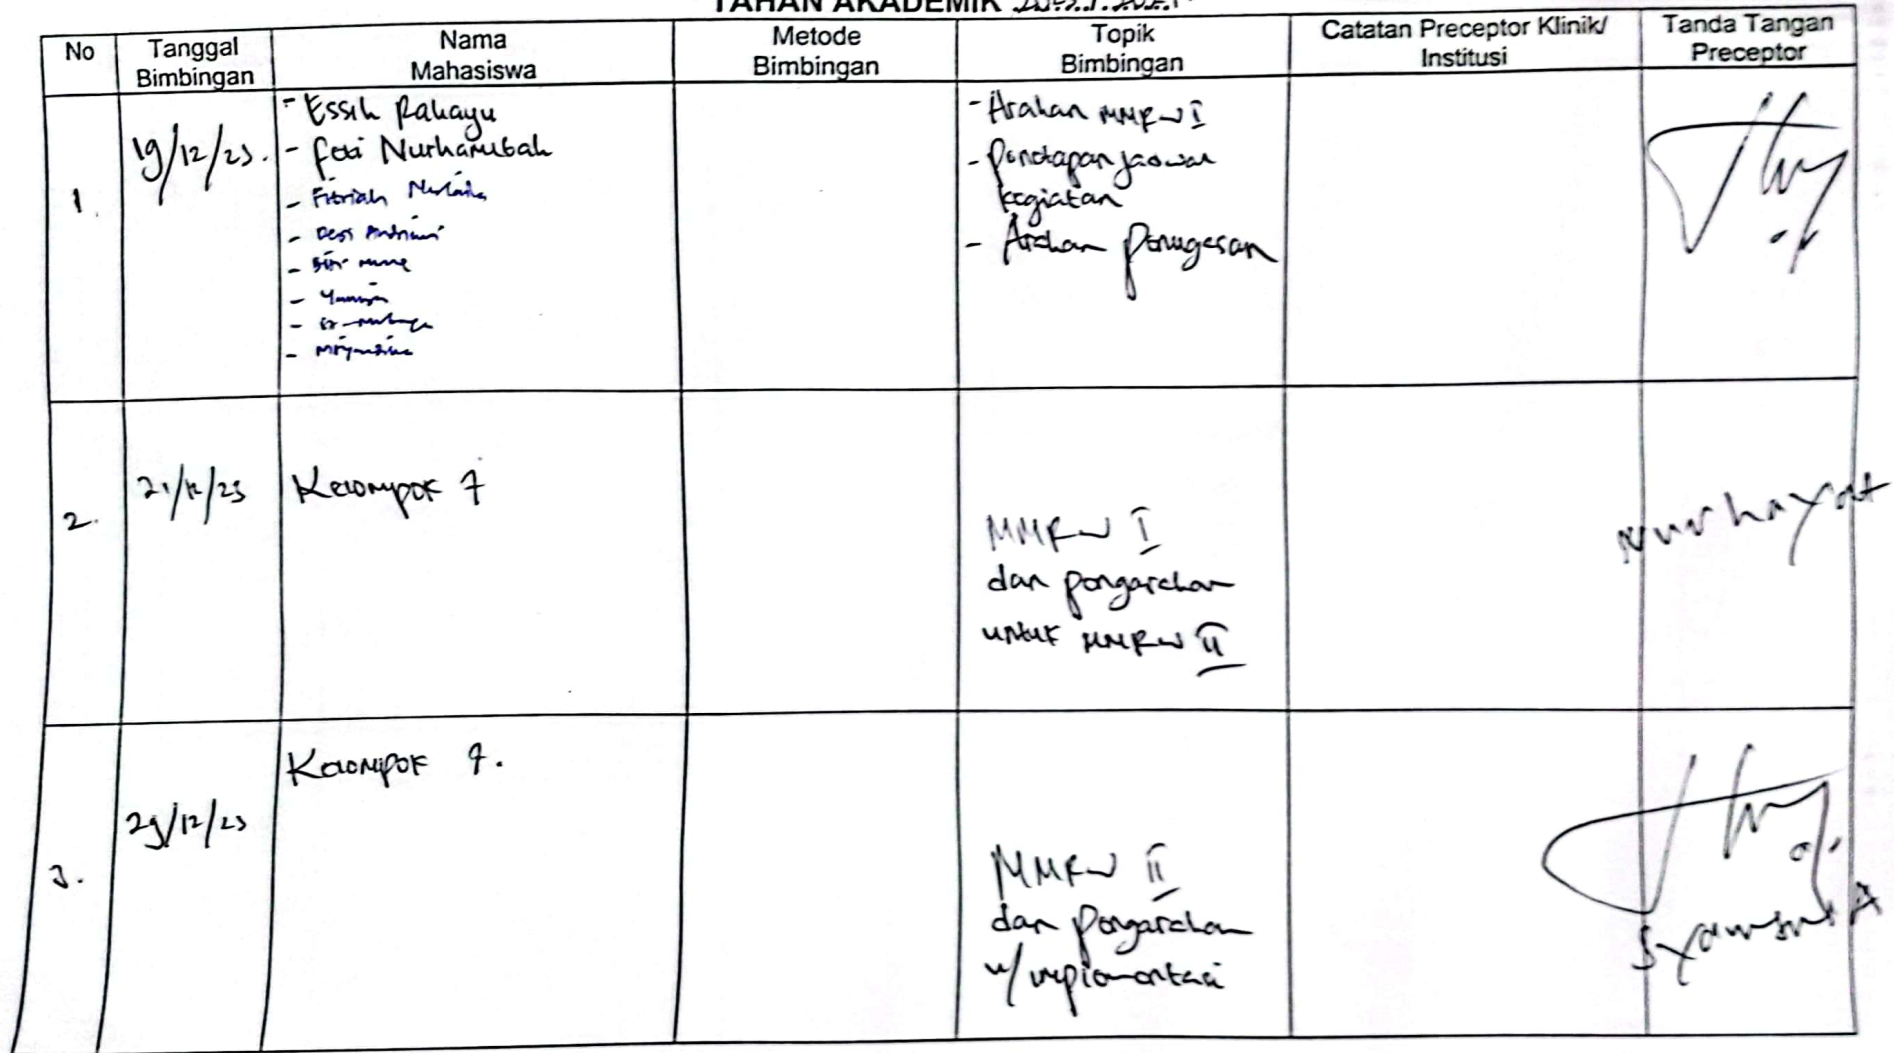 TAHAN AKADEMIK
No
Tanggal
Bimbingan
Nama
Mahasiswa
Metode
Bimbingan
Topik
Bimbingan
Catatan Preceptor Klinik/
Institusi
Tanda Tangan
Preceptor
1.
19/12/23.
- Essih Rahayu
- Nurharubah
- Fitriah
-
- Siti
-
-
-
- Arahan MMRW I
- Penetapan jadwal
kegiatan
- Arahan penugasan
2.
21/12/23
Kelompok 7
MMRW I
dan pengarahan
untuk MMRW II
Nurhayat
3.
29/12/23
Kelompok 7.
MMRW II
dan pengarahan
u/ implementasi